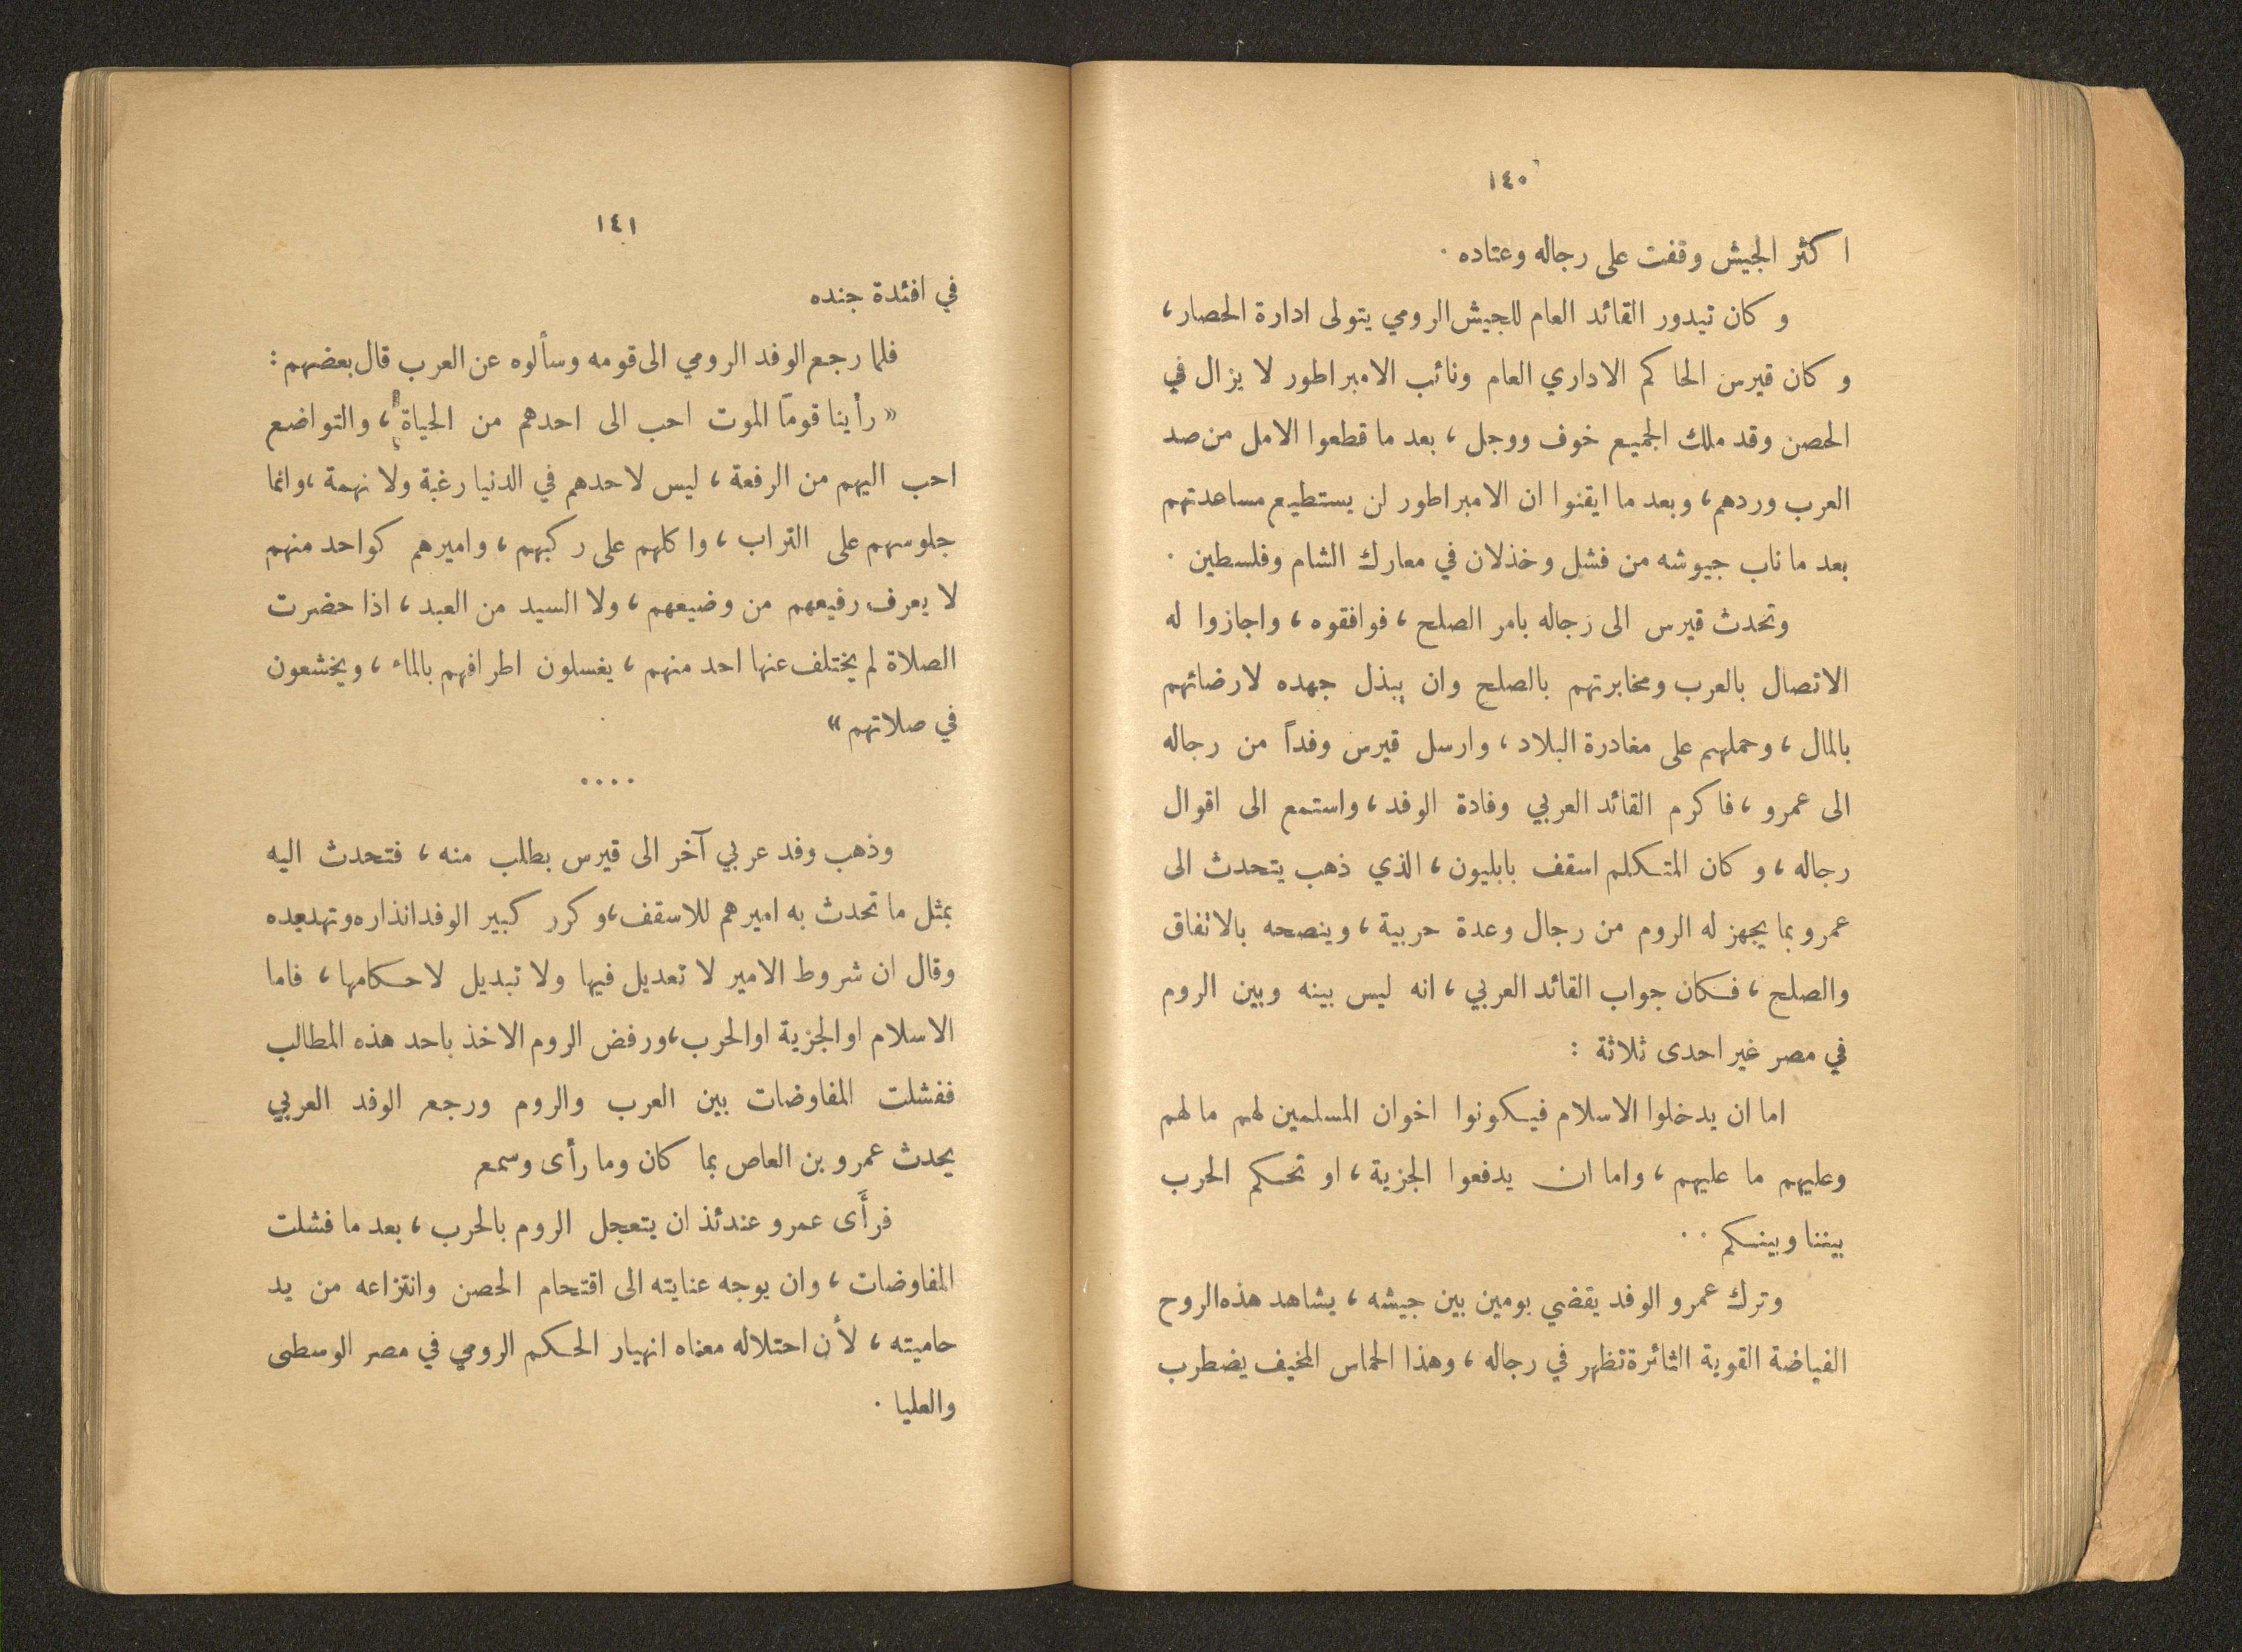 ١٤٠
اكثر الجيش وقفت على رجاله وعتاده ·
وكان تيدور القائد العام للجيش الرومي يتولى ادارة الحصار،
وكان قيرس الحاكم الاداري العام ونائب الامبراطور لا يزال في
الحصن وقد ملك الجميع خوف ووجل ، بعد ما قطعوا الامل من صد
العرب وردهم، وبعد ما ايقنوا ان الامبراطور لن يستطيع مساعدتهم
بعد ما ناب جيوشه من فشل وخذلان في معارك الشام وفلسطين ·
وتحدث قيرس الى رجاله بامر الصلح ، فوافقوه ، واجازوا له
الاتصال بالعرب ومخابرتهم بالصلح وان يبذل جهده لارضائهم
بالمال ، وحملهم على مغادرة البلاد ، وارسل قيرس وفداً من رجاله
الى عمرو ، فاكرم القائد العربي وفادة الوفد ، واستمع الى اقوال
رجاله ، وكان المتكلم اسقف بابليون ، الذي ذهب يتحدث الى
عمرو بما يجهز له الروم من رجال وعدة حربية ، وينصحه بالاتفاق
والصلح ، فكان جواب القائد العربي ، انه ليس بينه وبين الروم
في مصر غير احدى ثلاثة :
اما ان يدخلوا الاسلام فيكونوا اخوان المسلمين لهم ما لهم
وعليهم ما عليهم ، واما ان يدفعوا الجزية ، او تحكم الحرب
بيننا وبينكم ··
وترك عمرو الوفد يقضي يومين بين جيشه ، يشاهد هذه الروح
الفياضة القوية الثائرة تظهر في رجاله ، وهذا الحماس المخيف يضطرب
١٤١
في افئدة جنده
فلما رجع الوفد الرومي الى قومه وسألوه عن العرب قال بعضهم :
« رأينا قوماً الموت احب الى احدهم من الحياة ، والتواضع
احب اليهم من الرفعة ، ليس لاحدهم في الدنيا رغبة ولا نهمة ، وانما
جلوسهم على التراب ، واكلهم على ركبهم ، واميرهم كواحد منهم
لا يعرف رفيعهم من وضيعهم ، ولا السيد من العبد ، اذا حضرت
الصلاة لم يختلف عنها احد منهم ، يغسلون اطرافهم بالماء ، ويخشعون
في صلاتهم »
····
وذهب وفد عربي آخر الى قيرس بطلب منه ، فتحدث اليه
بمثل ما تحدث به اميرهم للاسقف ، وكرر كبير الوفد انذاره وتهديده
وقال ان شروط الامير لا تعديل فيها ولا تبديل لاحكامها ، فاما
الاسلام او الجزية او الحرب ، ورفض الروم الاخذ باحد هذه المطالب
ففشلت المفاوضات بين العرب والروم ورجع الوفد العربي
يحدث عمرو بن العاص بما كان وما رأى وسمع
فرأَى عمرو عندئذ ان يتعجل الروم بالحرب ، بعد ما فشلت
المفاوضات ، وان يوجه عنايته الى اقتحام الحصن وانتزاعه من يد
حاميته ، لأن احتلاله معناه انهيار الحكم الرومي في مصر الوسطى
والعليا ·